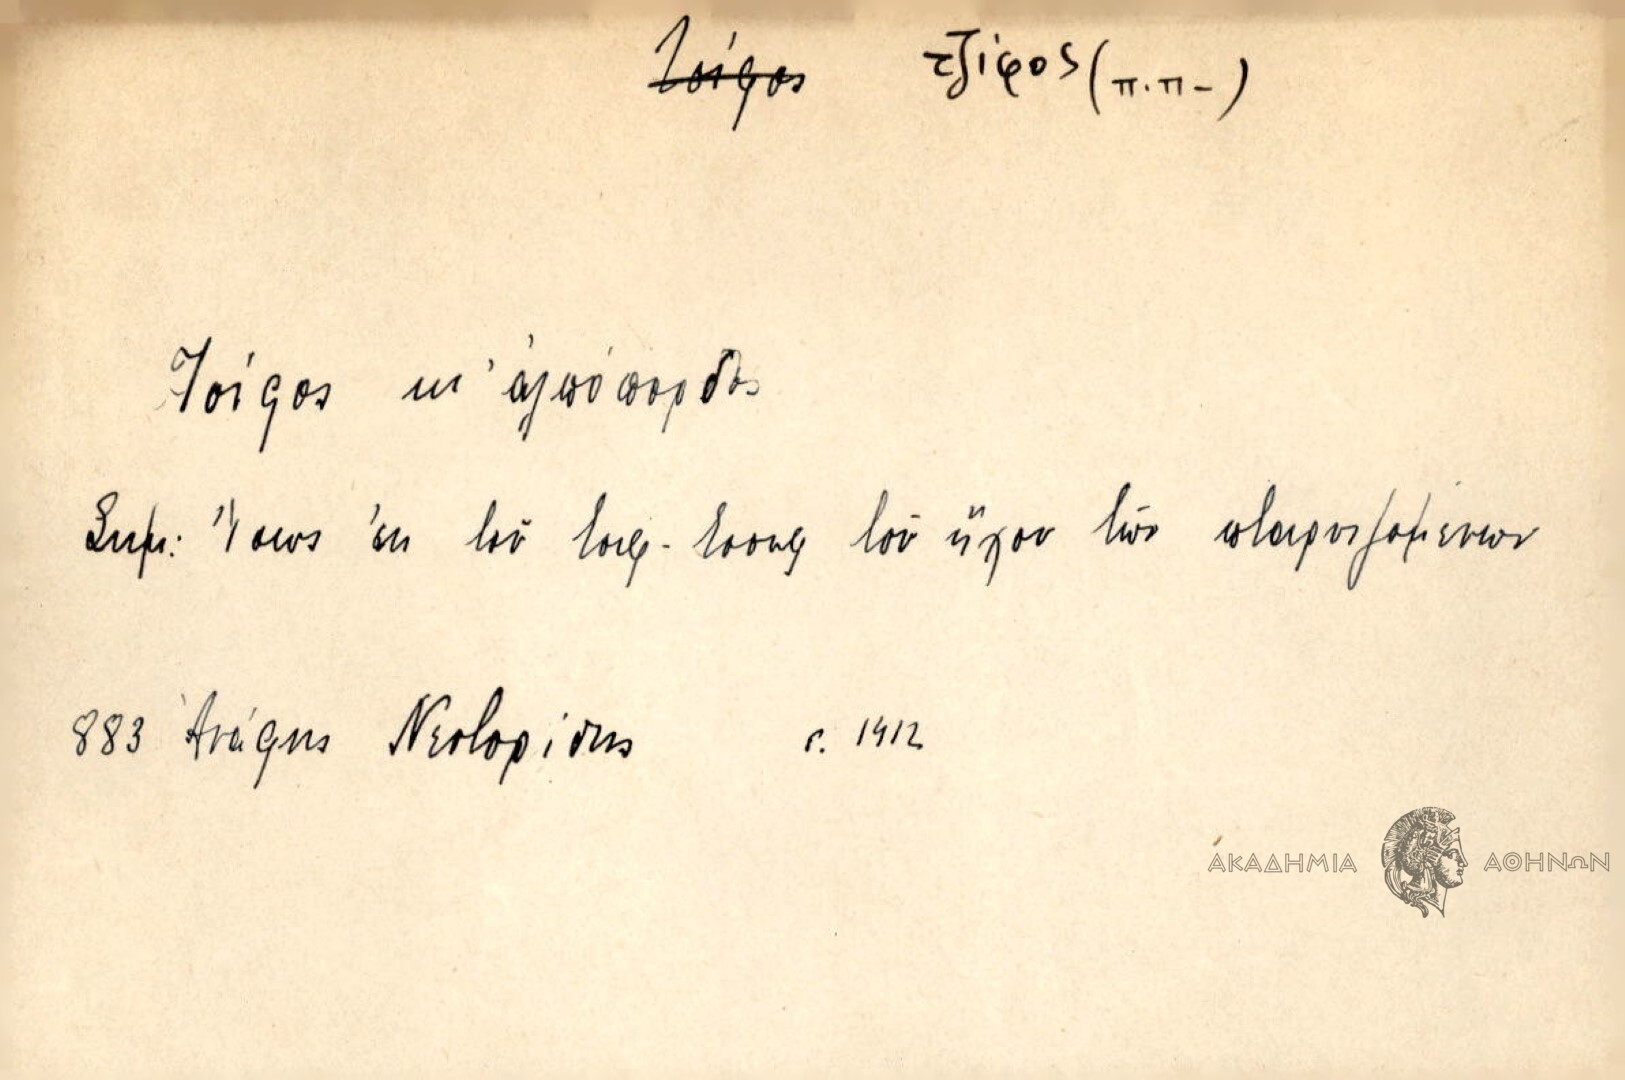 ~~Τσίφος~~ τζίφος (π.π-)
Τσίφος κι' ἀλπόπορδος
Σημ: Ἴσως ἐκ τοῦ τσιφ-τσουφ τοῦ ἤχου τῶν πταρνιζομένων
883 Ἀνάφης Νεοτορίδης σ. 1912
ΑΚΑΔΗΜΙΑ ΑΘΗΝΩΝ